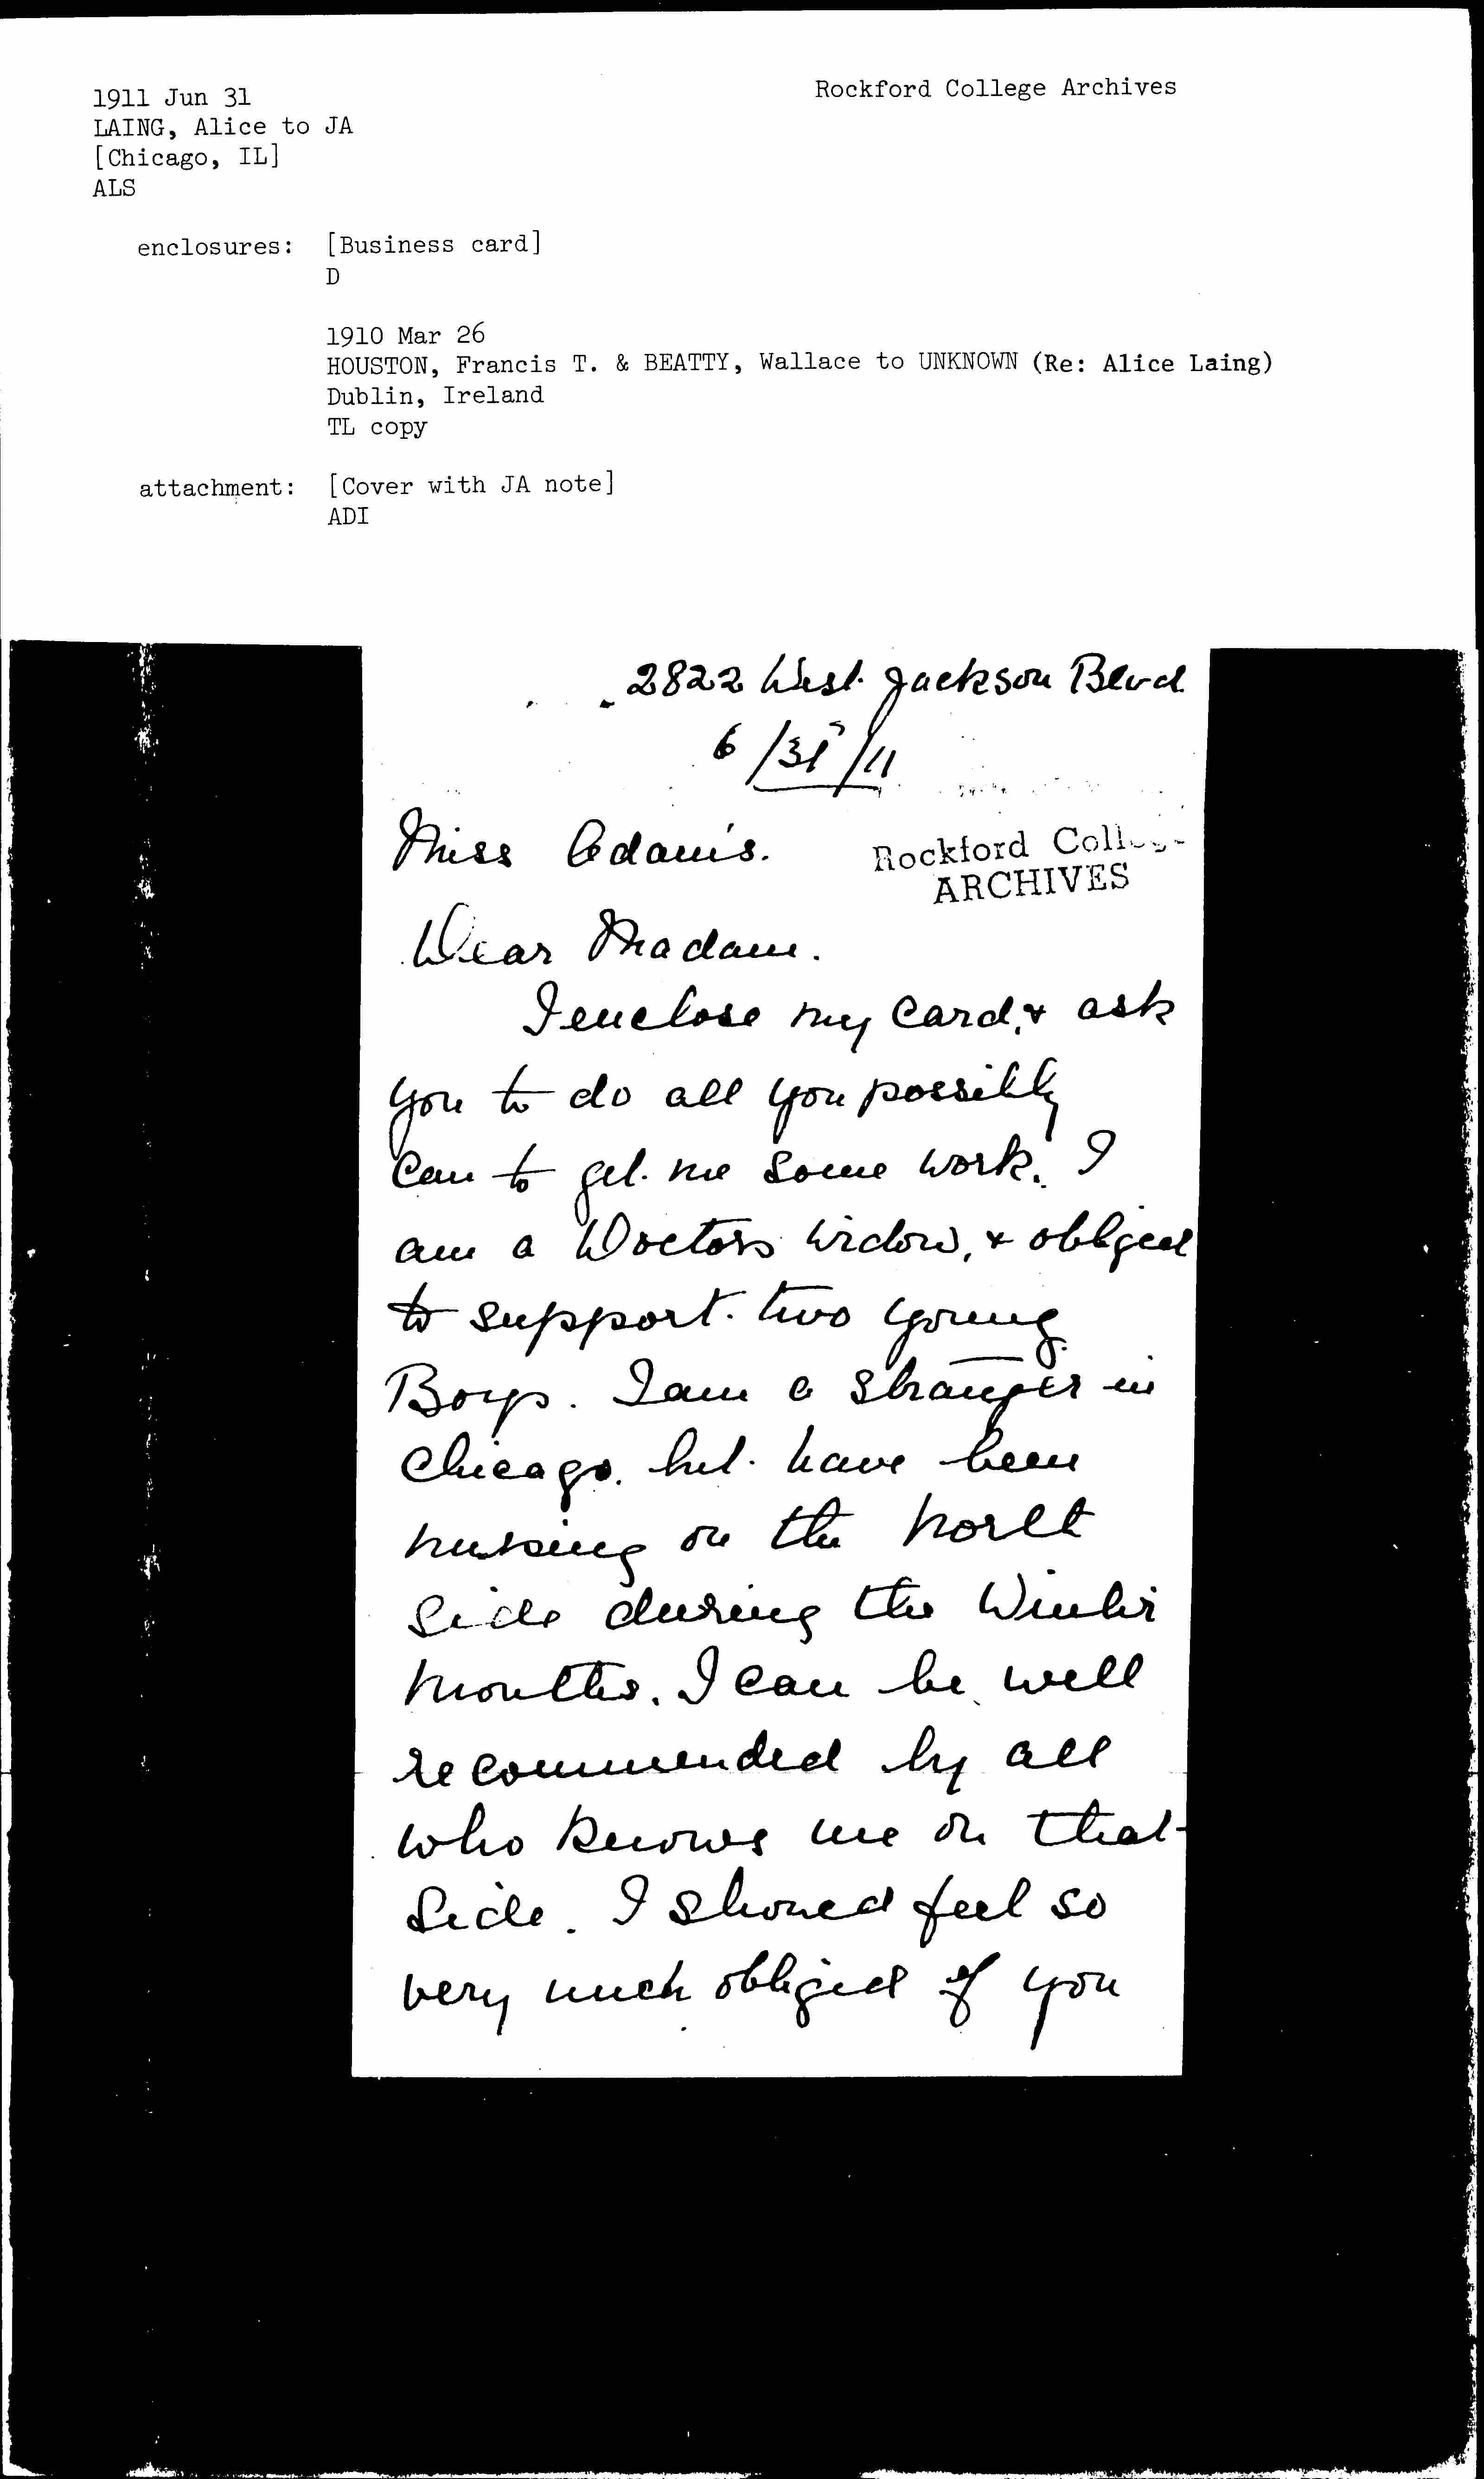 1911 Jun 31
Rockford College Archives
LAING, Alice to JA
[Chicago, IL]
ALS
enclosures: [Business card]
D
1910 Mar 26
HOUSTON, Francis T. & BEATTY, Wallace to UNKNOWN (Re: Alice Laing)
Dublin, Ireland
TL copy
attachment: [Cover with JA note]
ADI
2822 West Jackson Blvd
6/31/11
Miss Adams.
Rockford College
ARCHIVES
Dear Madam.
I enclose my Card, & ask
you to do all you possibly
Can to get me some work. I
am a Doctors widow, & obliged
to support two young
Boys. I am a stranger in
Chicago. but have been
nursing on the North
Side during the Winter
months. I can be well
recommended by all
who knows me on that
Side. I should feel so
very much obliged if you